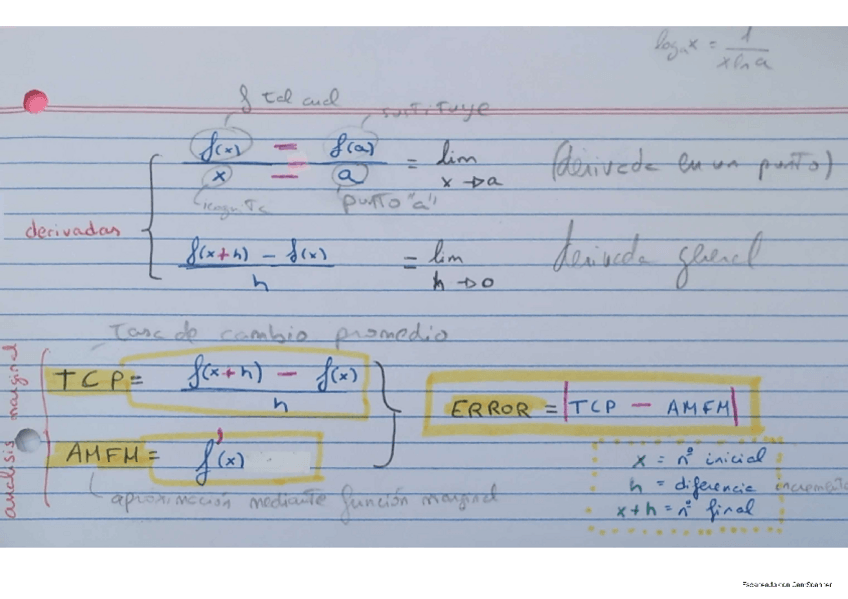 logₐx = 1 / x ln a
f tal cual
sustituye
f(x) − f(a) / x − a = lim x→a (derivada en un punto)
punto "a"
derivadas
f(x+h) − f(x) / h = lim h→0 derivada gneral
Tasa de cambio promedio
analisis marginal
TCP = f(x+h) − f(x) / h
ERROR = |TCP − AMFM|
AMFM = f'(x)
aproximación mediante función marginal
x = nº inicial
h = diferencia incremento
x+h = nº final
Escaneado con CamScanner